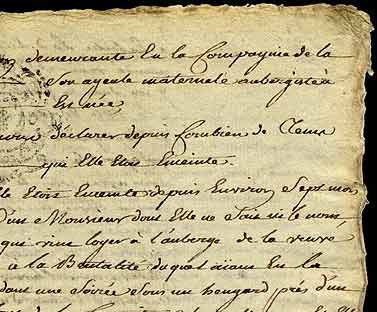 demeurante En la Compagnie de la
Son ayeule maternelle aubergiste à
En née,
declarer depuis Combien de Tems
qui Elle Etoit Enceinte.
Etoit Enceinte depuis Environ Sept moi
D'un Monsieur dont Elle ne Sait ni le nom,
qui vint loger à l'auberge de la veuve
à la Brutalité duquel En la
dans une Soirée Sous un hengard près d'un